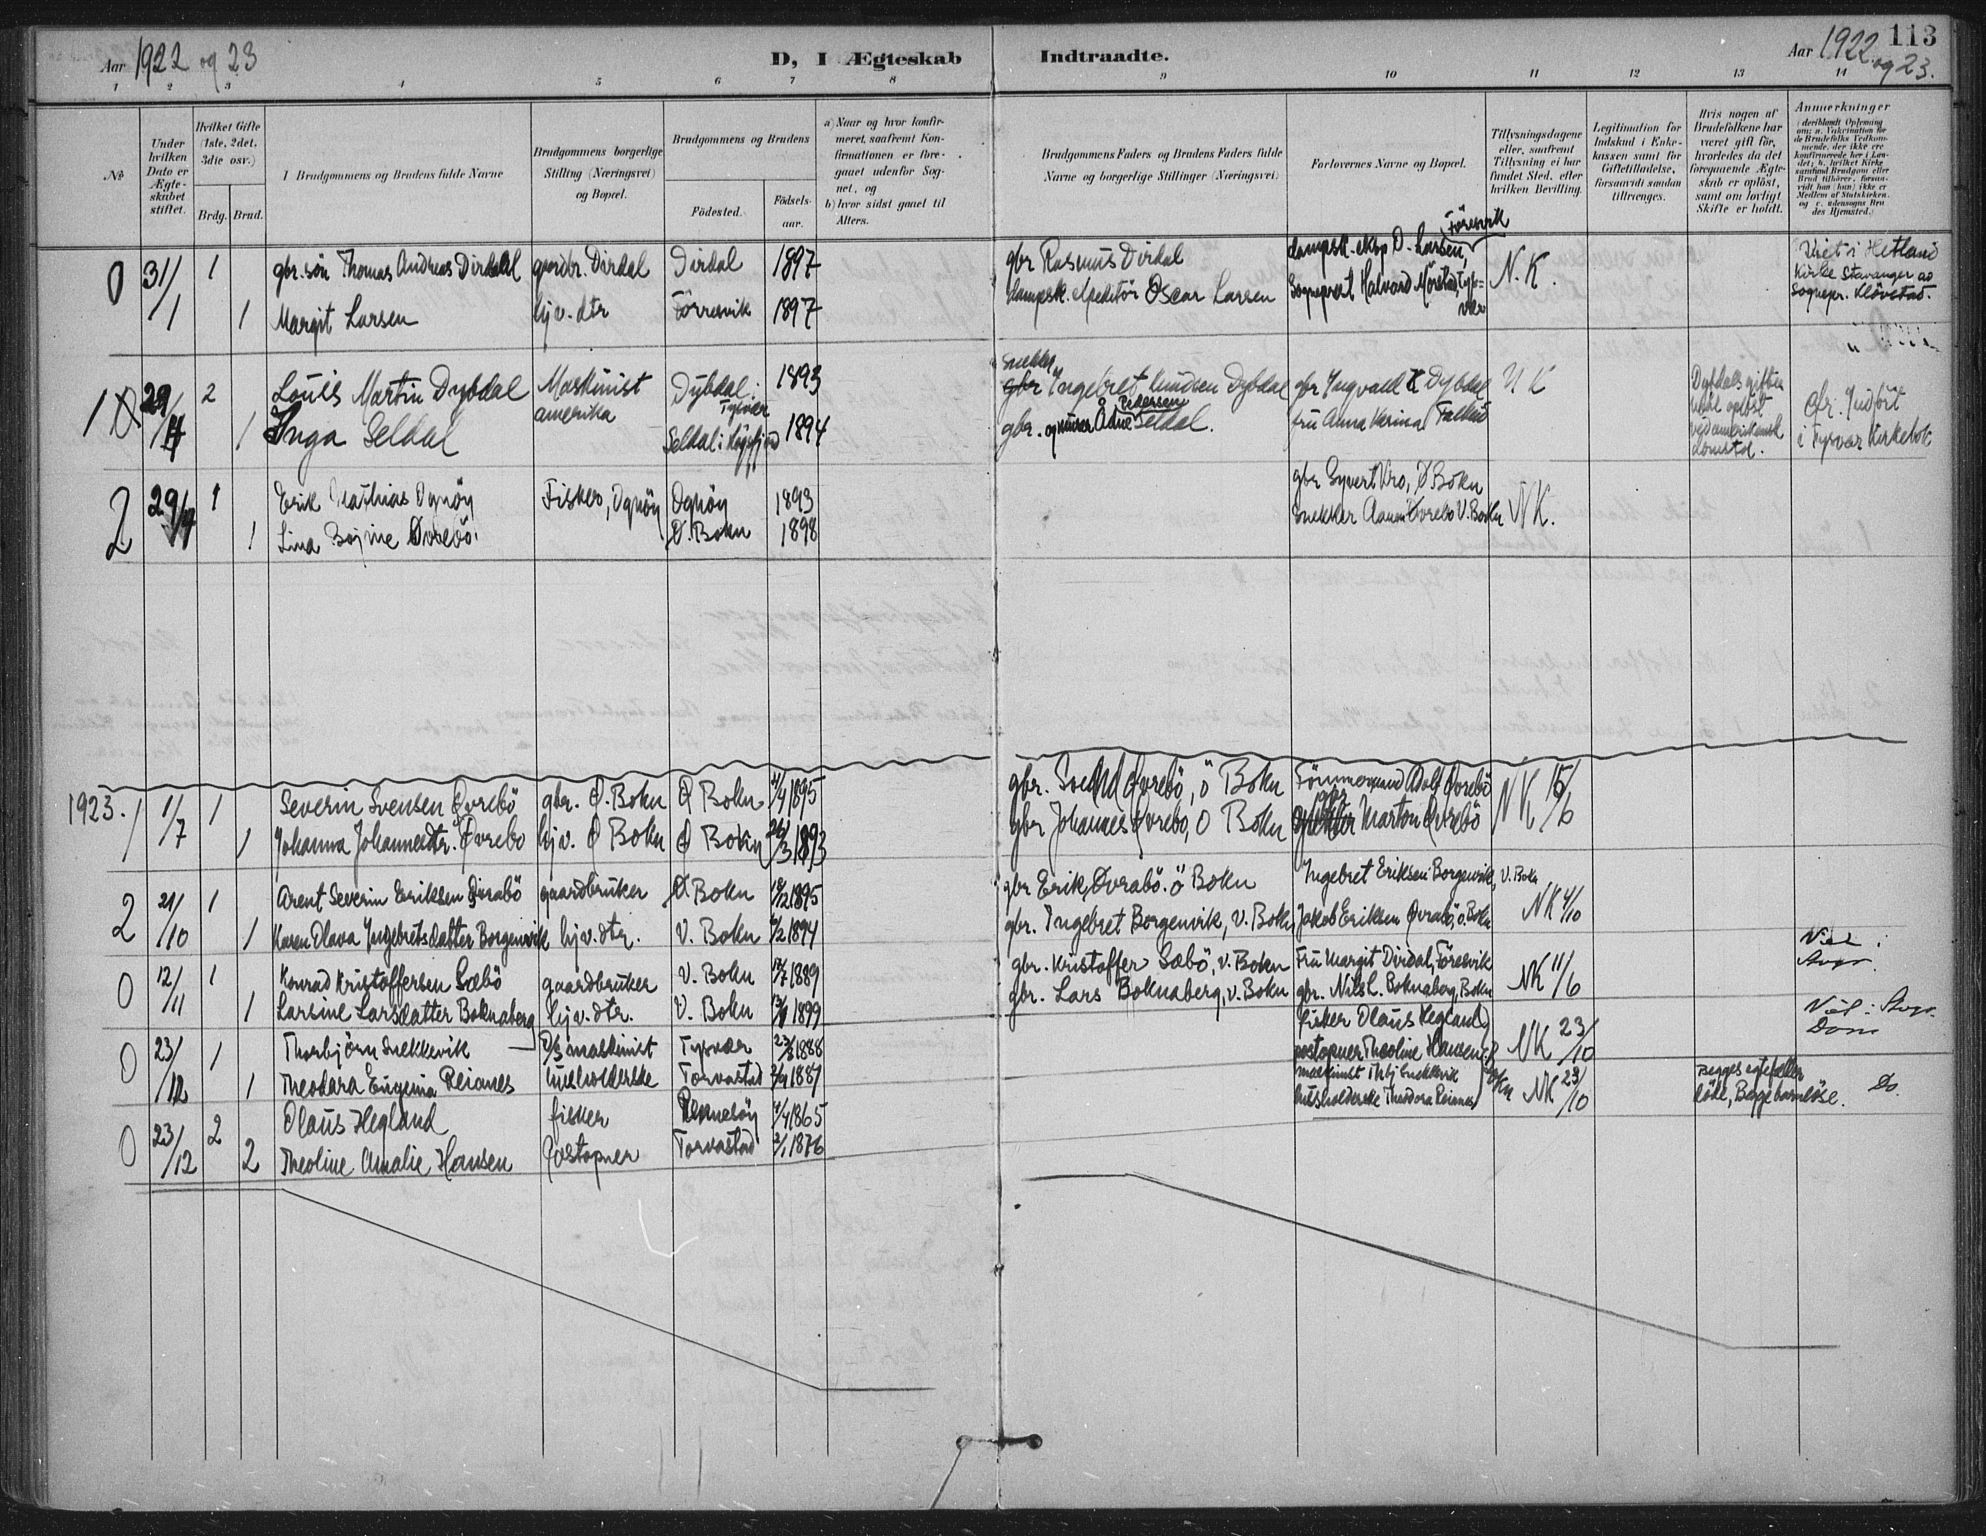 Aar 1922 og 23
D, I Ægteskab Indtraadte.
Aar 1922 og 23.
113
1 2 3 4 5 6 7 8 9 10 11 12 13 14
No.
Under hvilken Dato er Ægteskabet stiftet.
Hvilket Gifte (1ste, 2det, 3die osv.)
Brdg. Brud.
1 Brudgommens og Brudens fulde Navne
Brudgommens borgerlige Stilling (Næringsvei) og Bopæl.
Brudgommens og Brudens
Fødested.
Fødselsaar.
a) Naar og hvor konfirmeret, saafremt Konfirmationen er foregaaet udenfor Sognet, og
b) hvor sidst gaaet til Alters.
Brudgommens Faders og Brudens Faders fulde Navne og borgerlige Stillinger (Næringsvei)
Forlovernes Navne og Bopæl.
Tillysningsdagene eller, saafremt Tillysning ei har fundet Sted, efter hvilken Bevilling.
Legitimation for Indskud i Enkekassen samt for Giftetilladelse, forsaavidt saadan tiltrænges.
Hvis nogen af Brudefolkene har været gift før, hvorledes da det foregaaende Ægteskab er opløst, samt om lovligt Skifte er holdt.
Anmerkninger
0 31/1 1 gbr.søn Thomas Andreas Dirdal gardbr. Dirdal Dirdal 1897 gbr Rasmus Dirdal dampsk.eksp O. Larsen, Föresvik N.K. Viet i Hetland Kirke Stavanger av Sognepr. Klövstad.
1 Margit Larsen hjv. dtr Förresvik 1897 dampsk. expeditör Oscar Larsen Sogneprest Halvard Mörstad,
1 29/4 2 Louis Martin Dybdal Maskinist amerika Dybdal. Tysvær 1893 Snekker Ingebret Knudsen Dybdal gbr Ingvald K Dybdal N K Dybdals giftermål opløst ved amerikansk domstol. Cfr. Indfört i Tysvær Kirkebok
1 Inga Seldal Seldal i Høgsfjord 1894 gbr. og murer Ådne Pedersen Seldal. fru Anna Karina Falkeid
2 29/4 1 Erik Mathias Ognöy Fisker, Ognöy Ognöy 1893 gbr Syvert Kro, Ø Bokn NK.
1 Lina Bojine Øvrebö. Ø. Bokn 1898 Snekker Aanen Øvrebö V. Bokn
1923. 1 1/7 1 Severin Svensen Øvrebö gbr. Ø. Bokn Ø Bokn 4/4 1895 gbr. Svend Øvrebö, ö Bokn Adolf Övrebö NK 15/6
1 Johanna Johannesdtr. Øvrebö hjv. Ø Bokn Ø Bokn 26/3 1893 gbr Johannes Øvrebö, O Bokn gbr Marton Øvrebö
2 21/10 1 Arent Severin Eriksen Øvrabö gaardbruker Ø Bokn 18/2 1895 gbr Erik Øvrabö. ö Bokn Ingebret Eriksen Borgenvik, V. Bokn NK 4/10
1 Karen Olava Ingebretsdatter Borgenvik hjv. dtr. V. Bokn 4/2 1894 gbr. Ingebret Borgenvik, V. Bokn Jakob Eriksen Øvrabö, ö. Bokn
0 12/11 1 Konrad Kristoffersen Sæbö gaardbruker V. Bokn 12/7 1889 gbr. Kristoffer Sæbö, V. Bokn Fru Margit Dirdal, Föresvik NK 11/6 Viet i Avgr.
1 Larsine Larsdatter Boknaberg hjv. dtr. V. Bokn 1899 gbr. Lars Boknaberg, V. Bokn gbr. Nils L. Boknaberg, Bokn
0 23/12 1 Thorbjörn Snekkevik D/S maskinist Tysvær 1888 fisker Olaus Hegland NK 23/10 Viet i Avgr. Dom
1 Theodara Eugenia Reianes husholderske Torvastad 1887 postopner Theoline Hansen
0 23/12 2 Olaus Hegland fisker Rennesöy 4/4 1865 maskinist Thbj Snekkevik Bokn NK 23/10 Begges egtefæller döde, Begge barnlöse. Do.
2 Theoline Amalie Hansen Postopner Torvastad 2/1 1876 husholderske Theodora Reianes